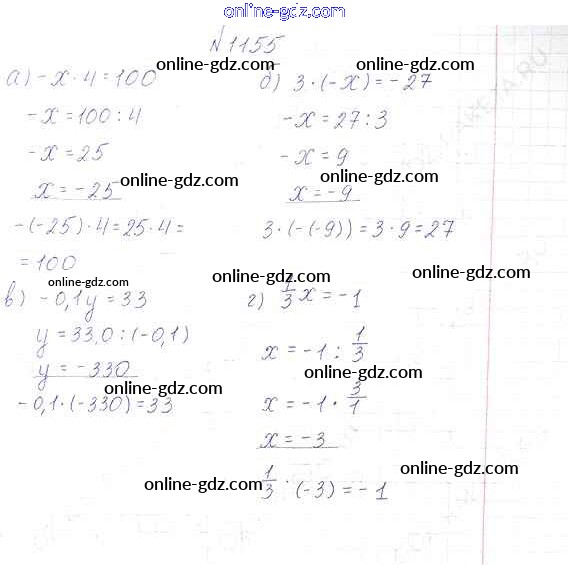 online-gdz.com
№1155
а) -x·4=100
-x=100:4
-x=25
x=-25
-(-25)·4=25·4=
=100
б) 3·(-x)=-27
-x=27:3
-x=9
x=-9
3·(-(-9))=3·9=27
в) -0,1y=33
y=33,0:(-0,1)
y=-330
-0,1·(-330)=33
г) 1/3 x=-1
x=-1:1/3
x=-1·3/1
x=-3
1/3·(-3)=-1
online-gdz.com
online-gdz.com
online-gdz.com
online-gdz.com
online-gdz.com
online-gdz.com
online-gdz.com
online-gdz.com
online-gdz.com
online-gdz.com
online-gdz.com